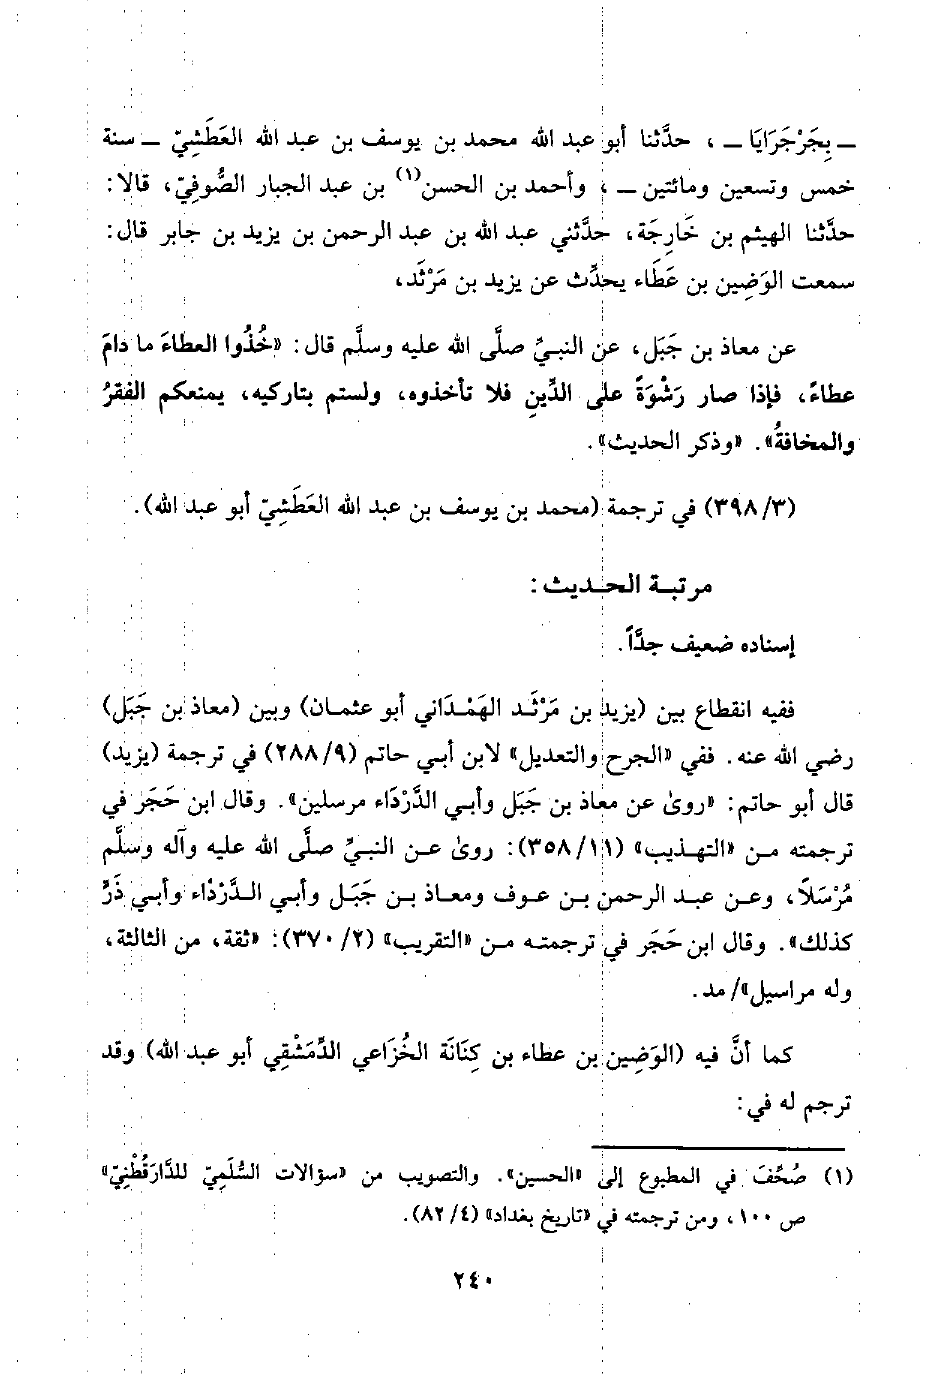 ــ بِجَرْجَرَايَا ــ ، حدَّثنا أبو عبد الله محمد بن يوسف بن عبد الله العَطَشِيّ ــ سنة
خمس وتسعين ومائتين ــ ، وأحمد بن الحسن(١) بن عبد الجبار الصُّوفِيّ، قالا:
حدَّثنا الهيثم بن خَارِجَة، حدَّثني عبد الله بن عبد الرحمن بن يزيد بن جابر قال:
سمعت الوَضِين بن عَطَاء يحدِّث عن يزيد بن مَرْثَد،
عن معاذ بن جَبَل، عن النبيِّ صلَّى الله عليه وسلَّم قال: «خُذُوا العطاءَ ما دامَ
عطاءً، فإذا صار رَشْوَةً على الدِّينِ فلا تأخذوه، ولستم بتاركيه، يمنعكم الفقرُ
والمخافةُ». «وذكر الحديث».
(٣٩٨/٣) في ترجمة (محمد بن يوسف بن عبد الله العَطَشِيّ أبو عبد الله).
مرتبة الحديث:
إسناده ضعيف جدَّاً.
ففيه انقطاع بين (يزيد بن مَرْثَد الهَمْدَاني أبو عثمان) وبين (معاذ بن جَبَل)
رضي الله عنه. ففي «الجرح والتعديل» لابن أبي حاتم (٢٨٨/٩) في ترجمة (يزيد)
قال أبو حاتم: «روىٰ عن معاذ بن جَبَل وأبي الدَّرْدَاء مرسلين». وقال ابن حَجَر في
ترجمته من «التهذيب» (٣٥٨/١١): روىٰ عن النبيِّ صلَّى الله عليه وآله وسلَّم
مُرْسَلاً، وعن عبد الرحمن بن عوف ومعاذ بن جَبَل وأبي الدَّرْدَاء وأبي ذَرٍّ
كذلك». وقال ابن حَجَر في ترجمته من «التقريب» (٣٧٠/٢): «ثقة، من الثالثة،
وله مراسيل»/ مد.
كما أنَّ فيه (الوَضِين بن عطاء بن كِنَانَة الخُزَاعي الدِّمَشْقِي أبو عبد الله) وقد
ترجم له في:
(١) صُحِّفَ في المطبوع إلى «الحسين». والتصويب من «سؤالات السُّلَمِيّ للدَّارَقُطْنِيّ»
ص ١٠٠، ومن ترجمته في «تاريخ بغداد» (٨٢/٤).
٢٤٠